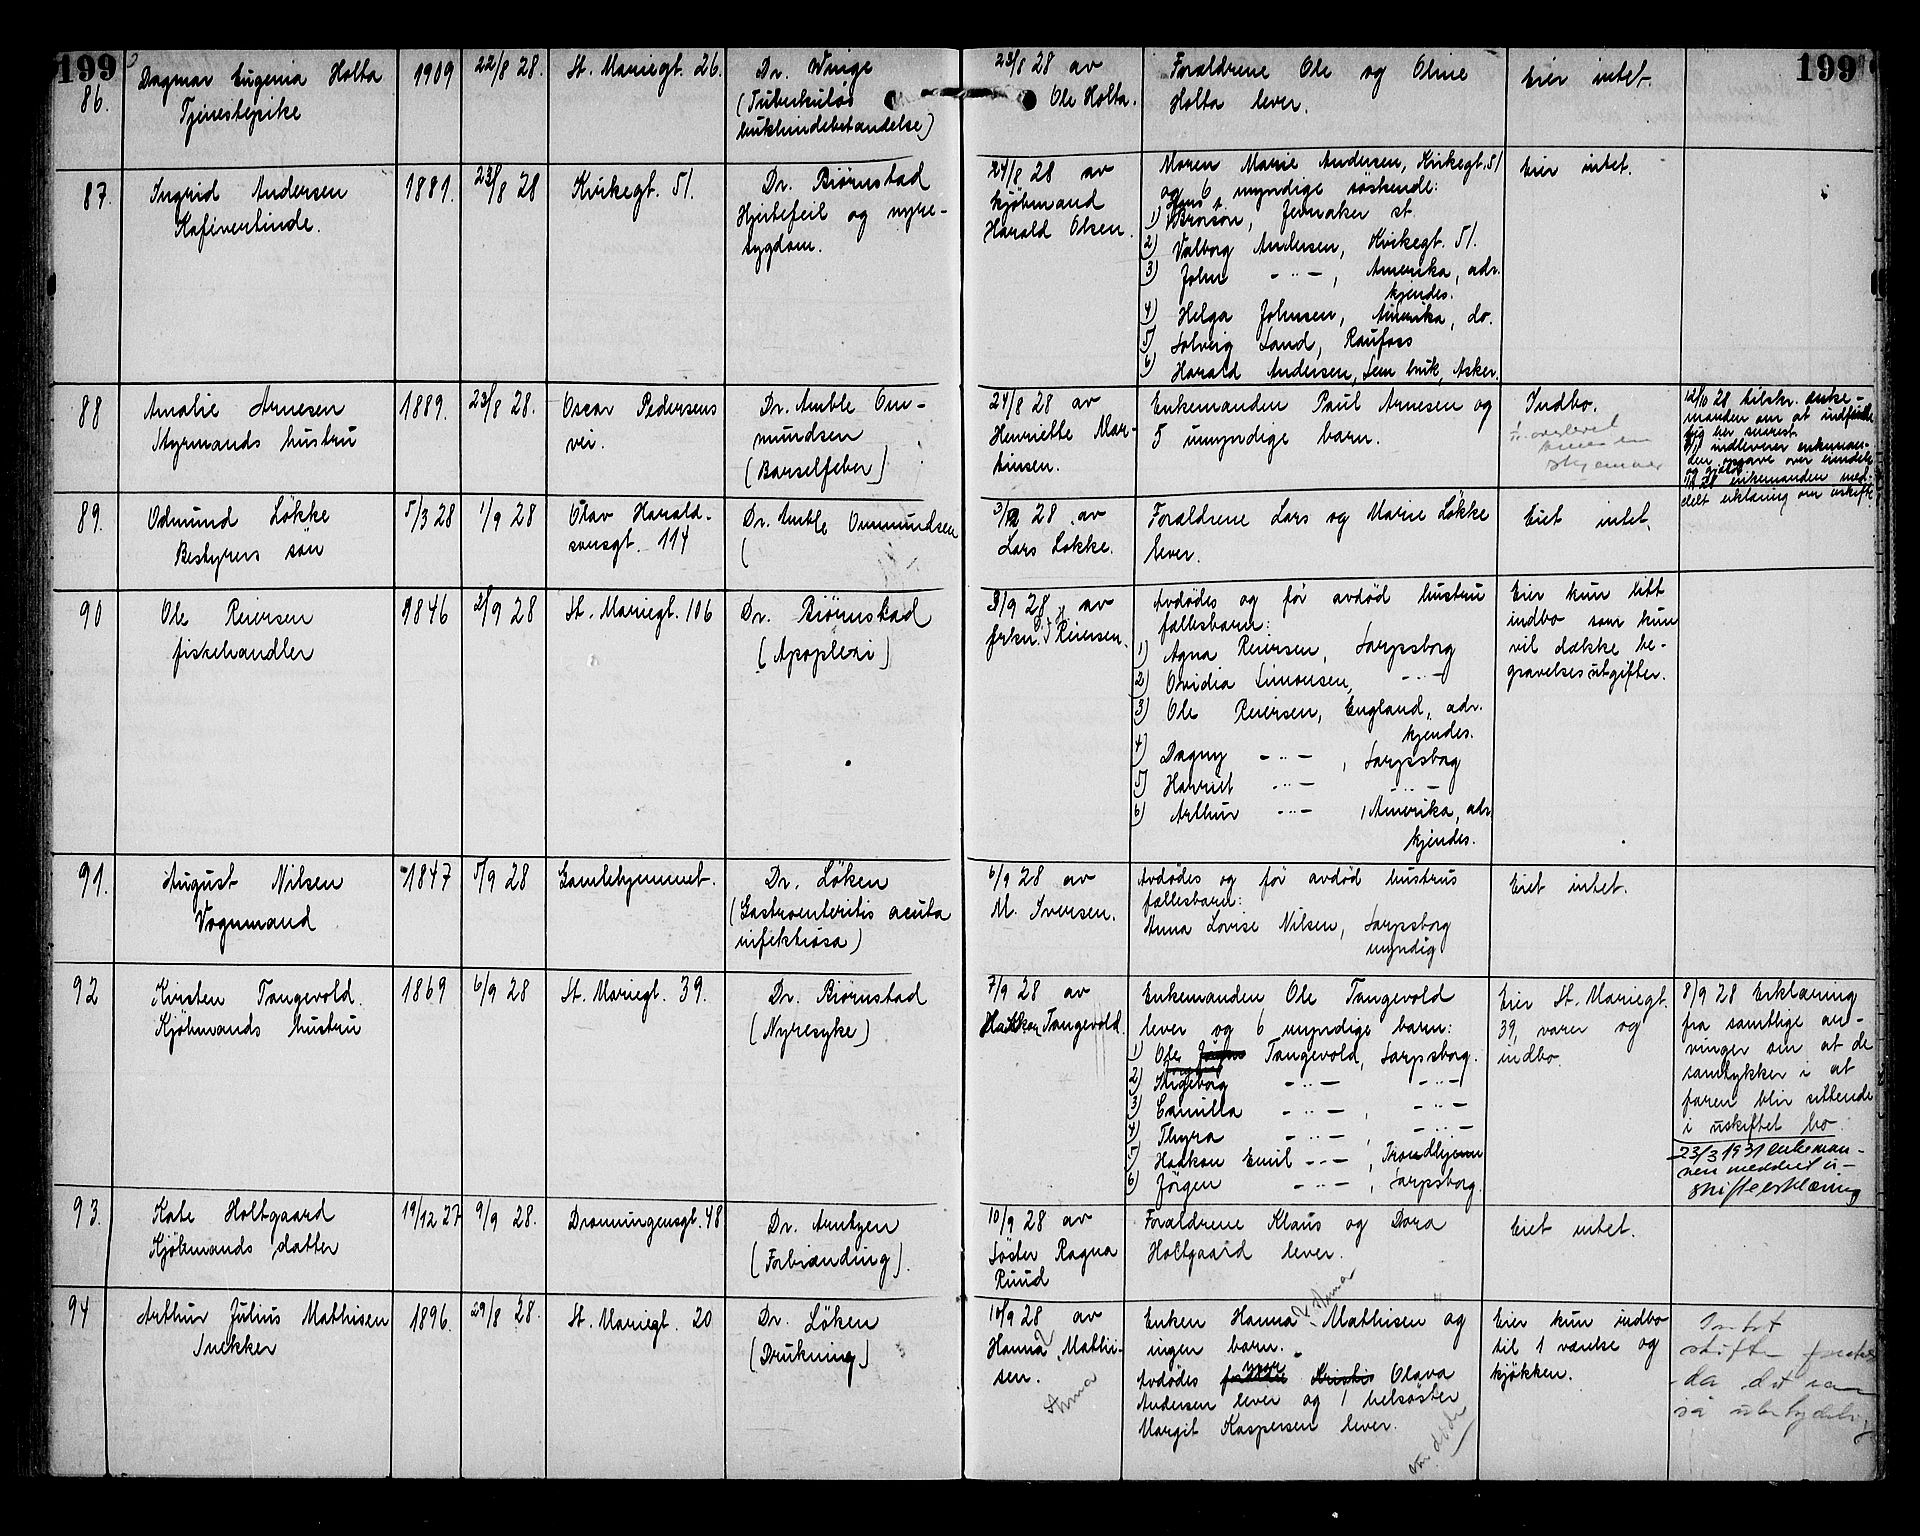 199
199
86.
Dagmar Eugenia Holta
Tjenestepike
1909
22/8 28.
St. Mariegt. 26.
Dr. Winge
(Tuberkuløs
bukhindebetændelse)
23/8 28 av
Ole Holta.
Forældrene Ole og Oline
Holta lever.
Eier intet.
87.
Ingrid Andersen
Kaféverdinde.
1881.
23/8 28
Kirkegt. 51.
Dr. Biørnstad
Hjertefeil og nyre-
sygdom.
24/8 28 av
kjöbmand
Harald Olsen.
Moren Marie Andersen, Kirkegt. 51
og 6 myndige søskende:
1) Brorson, Jevnaker st.
2) Valborg Andersen, Kirkegt. 51.
3) John -"-, Amerika, adr.
kjendes.
4) Helga Johnsen, Amerika, do.
5) Solveig Land, Raufoss
6) Harald Andersen, Sem bruk, Asker.
Eier intet.
88
Amalie Arnesen
Styrmands hustru
1889.
23/8 28.
Oscar Pedersens
vei.
Dr. Amble Om-
mundsen
(Barselfeber)
24/8 28 av
Henriette Mar-
tinsen.
Enkemanden Paul Arnesen og
5 umyndige barn.
Indbo.
12/10 28 tilskr. enke-
manden om at indfinde
sig her snarest.
indleverer enkeman-
den opgave over eiendele
og gjæld
28 enkemanden med-
delt erklæring om uskifte.
89.
Odmund Løkke
Bestyrers søn
5/3 28
1/9 28
Olav Harald-
sønsgt. 114
Dr. Amble Ommundsen
(
28 av
Lars Løkke.
Forældrene Lars og Marie Løkke
lever.
Eiet intet.
90
Ole Reiersen
fiskehandler
1846
2/9 28
St. Mariegt. 106
Dr. Biørnstad
(Apoplexi)
3/9 28 av
frkn. Reiersen.
Avdødes og før avdød hustru
fællesbarn:
1) Agna Reiersen, Sarpsborg
2) Ovidia Simonsen, -"-
3) Ole Reiersen, England, adr.
kjendes.
4) Dagny -"-, Sarpsborg
5) Harriet -"- -"-
6) Arthur -"-, Amerika, adr.
kjendes.
Eier kun litt
indbo som kun
vil dække be-
gravelsesutgifter.
91.
August Nilsen
Vognmand
1847
5/9 28
Gamlehjemmet.
Dr. Løken
(Gastroenteritis acuta
infektiosa)
6/9 28 av
M. Iversen.
Avdødes og før avdød hustrus
fællesbarn:
Anna Lovise Nilsen, Sarpsborg
myndig
Eiet intet.
92
Kirsten Tangevold.
Kjöbmands hustru
1869
6/9 28
St. Mariegt. 39.
Dr. Biørnstad
(Nyresyke)
7/9 28 av
Håkon Tangevold.
Enkemanden Ole Tangevold
lever og 6 myndige barn:
1) Ole Tangevold, Sarpsborg.
2) Ingeborg -"- -"-
3) Camilla -"-, -"-
4) Thyra -"-, -"-
5) Haakon Emil -"-, Trondhjem
6) Jörgen -"-, Sarpsborg.
Eier St. Mariegt.
39, varer og
indbo.
8/9 28 Erklæring
fra samtlige arv-
inger om at de
samtykker i at
faren blir sittende
i uskiftet bo.
23/3 1931 enkeman-
nen meddelt u-
skifteerklæring
93.
Kate Holtgaard
Kjöbmands datter
19/12 27
9/9 28.
Dronningensgt. 48
Dr. Arntzen
(Forbrænding).
10/9 28 av
Søster Ragna
Ruud
Forældrene Klaus og Dora
Holtgaard lever.
Eiet intet.
94
Arthur Julius Mathisen
Snekker
1896.
29/8 28.
St. Mariegt. 20
Dr. Løken
(Drukning)
10/9 28 av
Hanna Mathi-
sen.
Anna
Enken Hanna Mathisen og
ingen barn.
Avdødes mor Olava
Andersen lever og 1 helsøster
Margit Kaspersen lever.
Eier kun indbo
til 1 værelse og
kjøkken.
Intet
skifte
da det var
så ubetydelig